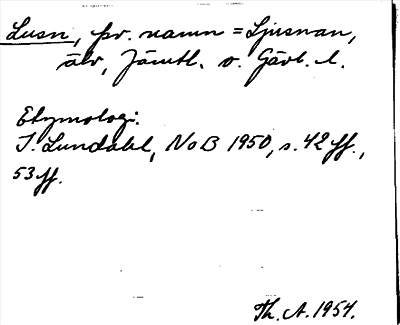 Lusn, pr. namn = Ljusnan,
älv, Jämtl. o. Gävl. l.
Etymologi:
I. Lundahl, NoB 1950, s. 42 ff.,
53 ff.
Th. A. 1954.